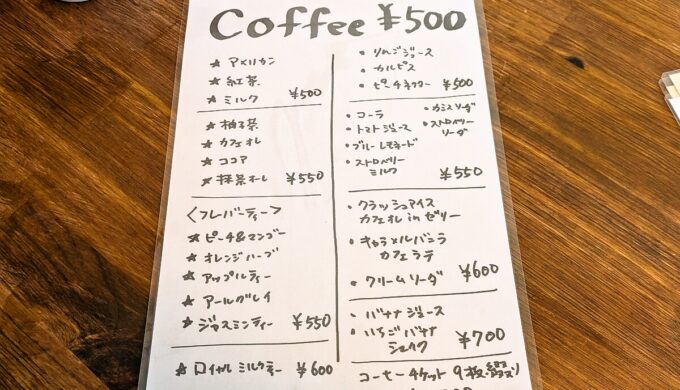 Coffee ¥500
★ アメリカン
★ 紅茶
★ ミルク ¥500
★ 柚子茶
★ カフェオレ
★ ココア
★ 抹茶オーレ ¥550
〈フレーバーティー〉
★ ピーチ&マンゴー
★ オレンジハーブ
★ アップルティー
★ アールグレイ
★ ジャスミンティー ¥550
★ ロイヤルミルクティー ¥600
• りんごジュース
• カルピス
• ピーチネクター ¥500
• コーラ
• トマトジュース
• ブルーレモネード
• ストロベリー
ミルク
• カシスソーダ
• ストロベリー
ソーダ
¥550
• クラッシュアイス
カフェオレ in ゼリー
• キャラメルバニラ
カフェラテ
• クリームソーダ ¥600
• バナナジュース
• いちごバナナ
シェイク ¥700
コーヒーチケット 9枚綴り